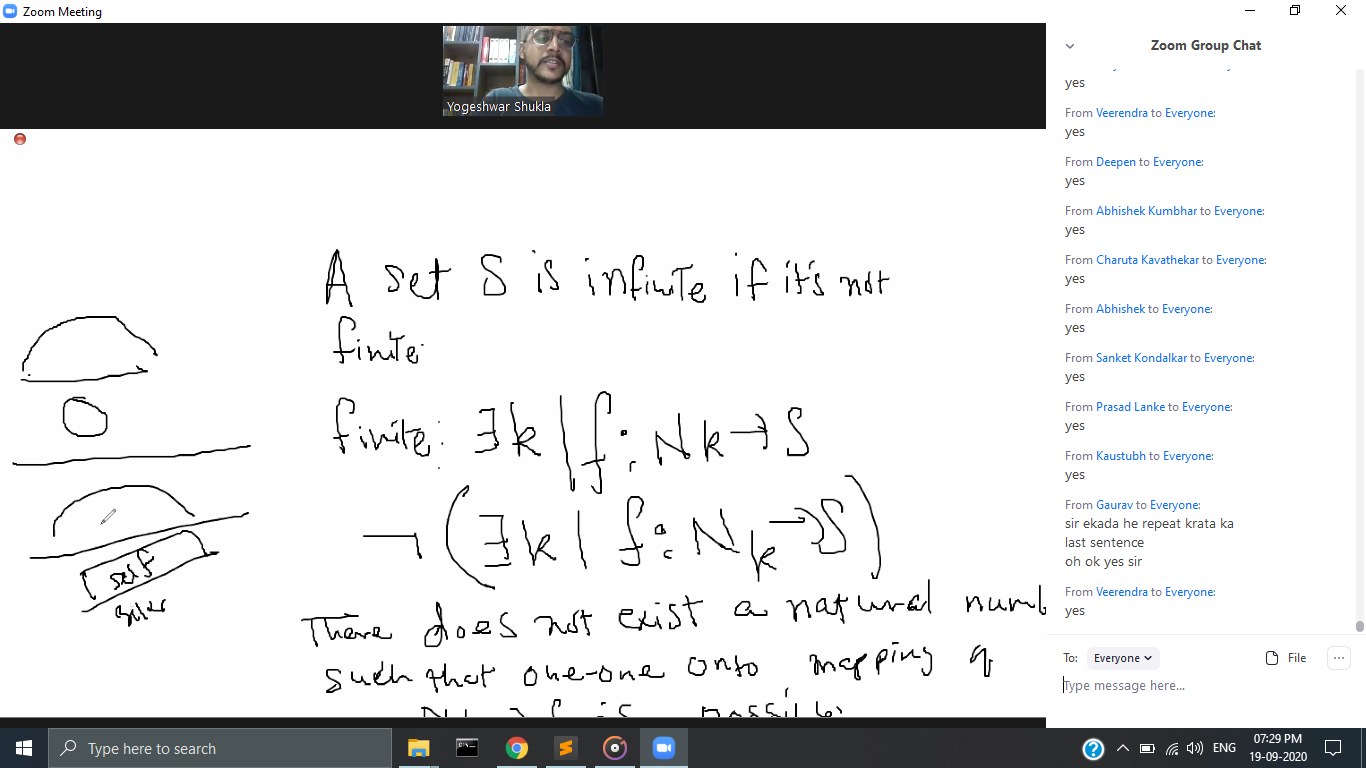 Zoom Meeting
Yogeshwar Shukla
A set S is infinite if it's not
finite.
finite: ∃k | f: Nk → S
¬ (∃k | f: Nk → S)
There does not exist a natural numb
such that one-one onto mapping of
possible
self
Zoom Group Chat
yes
From Veerendra to Everyone:
yes
From Deepen to Everyone:
yes
From Abhishek Kumbhar to Everyone:
yes
From Charuta Kavathekar to Everyone:
yes
From Abhishek to Everyone:
yes
From Sanket Kondalkar to Everyone:
yes
From Prasad Lanke to Everyone:
yes
From Kaustubh to Everyone:
yes
From Gaurav to Everyone:
sir ekada he repeat krata ka
last sentence
oh ok yes sir
From Veerendra to Everyone:
yes
To: Everyone File
Type message here...
Type here to search
ENG
07:29 PM
19-09-2020